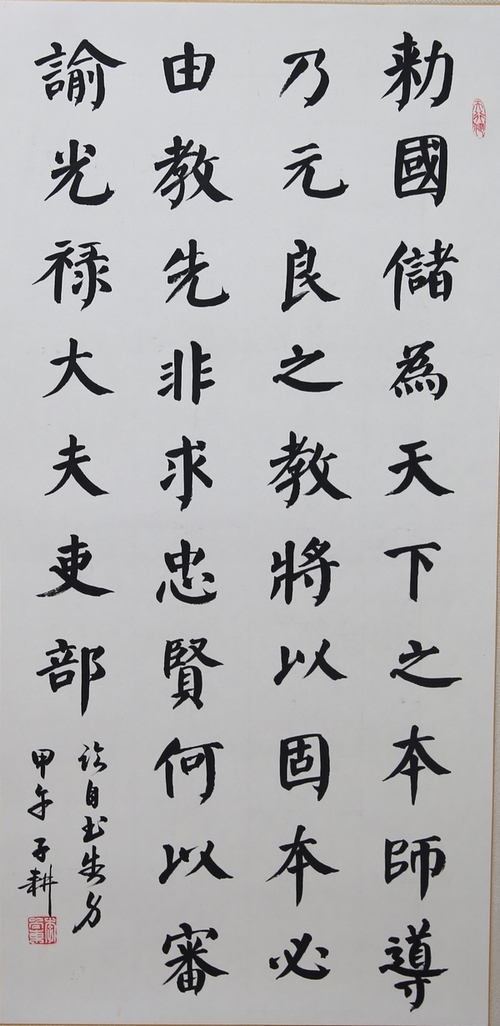 勅國儲為天下之本師導
乃元良之教將以固本必
由教先非求忠賢何以審
諭光禄大夫吏部
临自书告身
甲午子耕